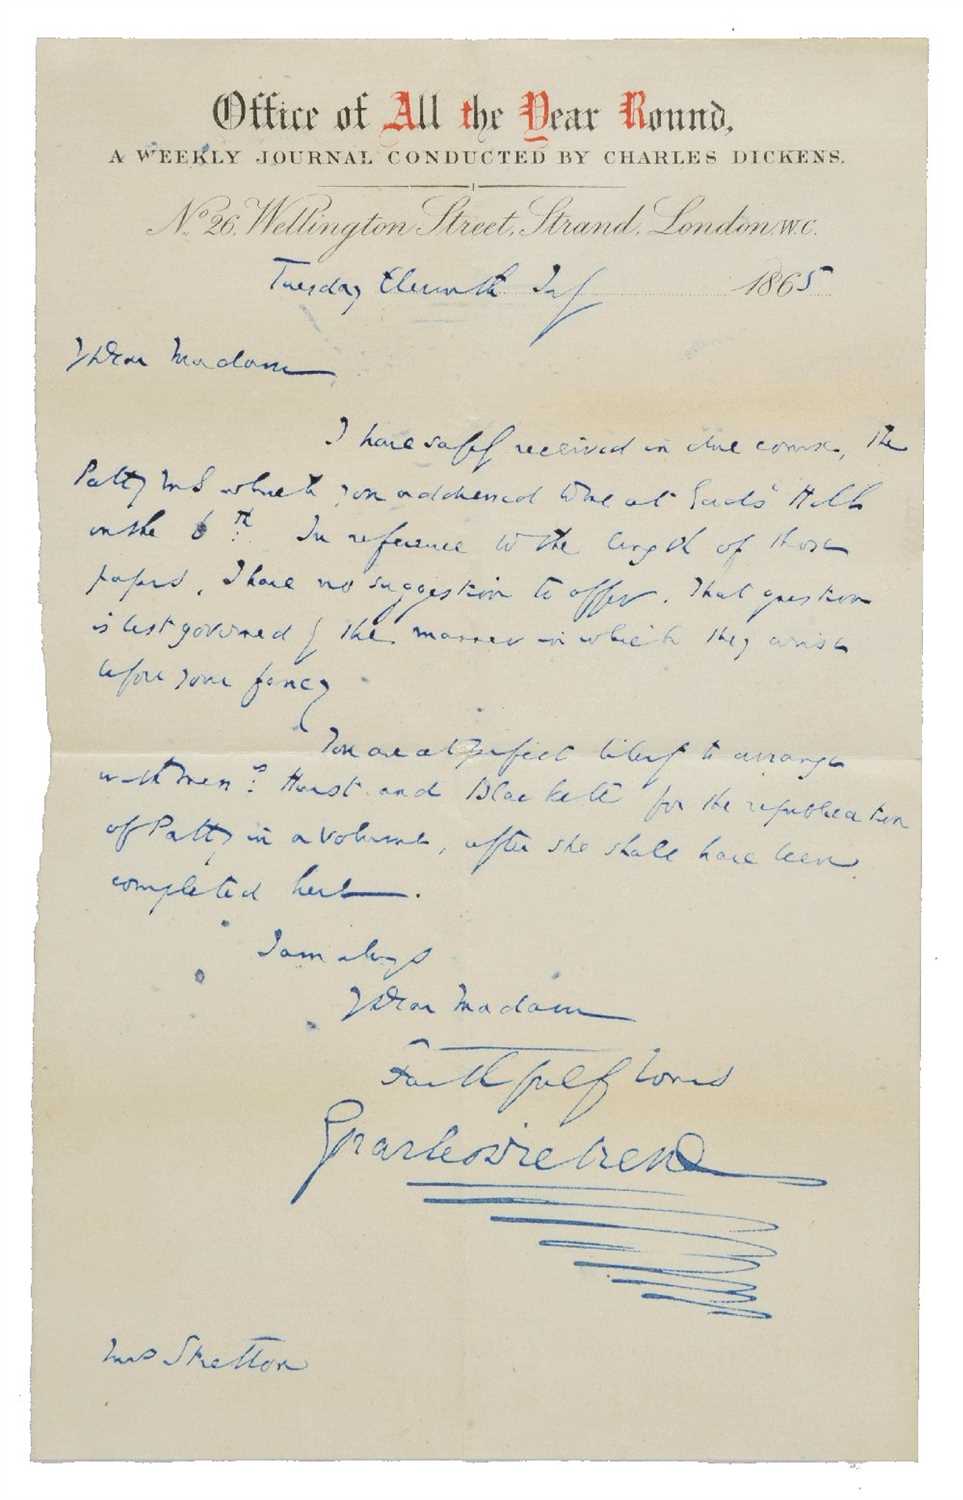 Office of All the Year Round,
A WEEKLY JOURNAL CONDUCTED BY CHARLES DICKENS.
No. 26, Wellington Street, Strand, London, W.C.
Tuesday Eleventh July 1865
My Dear Madam
I have safely received in due course, the
Patty MS which you addressed to me at Gad's Hill
on the 6th. In reference to the length of those
papers, I have no suggestion to offer. That question
is best governed by the manner in which they arise
before your fancy
You are at perfect liberty to arrange
with Messrs. Hurst and Blackett for the republication
of Patty in a volume, after she shall have been
completed here.
I am always
My Dear Madam
Faithfully Yours
Charles Dickens
Mrs Stretton